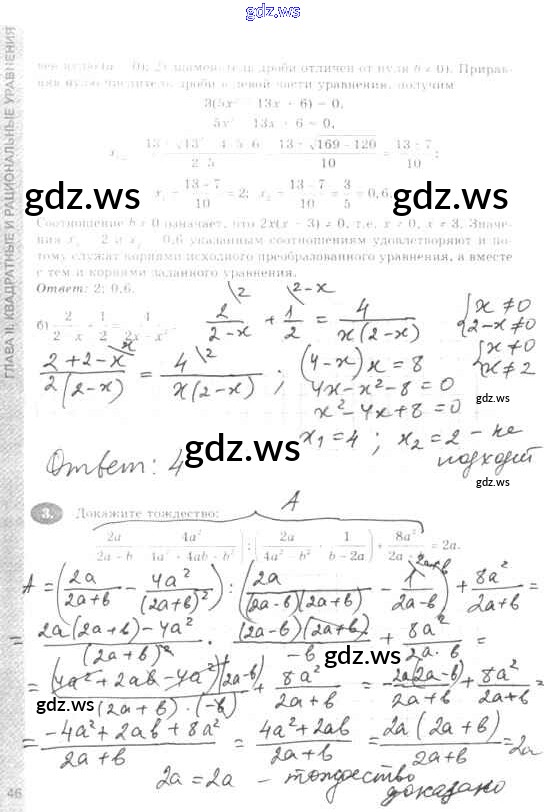 gdz.ws
ГЛАВА II. КВАДРАТНЫЕ И РАЦИОНАЛЬНЫЕ УРАВНЕНИЯ
вен нулю (a = 0); 2) знаменатель дроби отличен от нуля b ≠ 0). Приравняв
няв нулю числитель дроби в левой части уравнения, получим
3(5x² − 13x + 6) = 0,
5x² − 13x + 6 = 0,
x₁,₂ = (13 ± √(13² − 4·5·6))/(2·5) = (13 ± √(169 − 120))/10 = (13 ± 7)/10;
gdz.ws gdz.ws
x₁ = (13 + 7)/10 = 2; x₂ = (13 − 7)/10 = 3/5 = 0,6.
Соотношение b ≠ 0 означает, что 2x(x − 3) ≠ 0, т.е. x ≠ 0, x ≠ 3. Значе-
ния x₁ = 2 и x₂ = 0,6 указанным соотношениям удовлетворяют и по-
тому служат корнями исходного преобразованного уравнения, а вместе
с тем и корнями заданного уравнения.
Ответ: 2; 0,6.
б) 2/(2 − x) + 1/2 = 4/(2x − x²).
2/(2−x) \2 + 1/2 \2−x = 4/(x(2−x)) {x ≠ 0 2−x ≠ 0
(2+2−x)/(2(2−x)) \x = 4/(x(2−x)) \2 ; (4−x)x = 8 {x ≠ 0 x ≠ 2
4x−x²−8=0
gdz.ws
x²−4x+8=0
x₁=4 ; x₂=2 – не
подходит
gdz.ws
Ответ: 4
3. Докажите тождество: A
(2a/(2a + b) − 4a²/(4a² + 4ab + b²)) : (2a/(4a² − b²) + 1/(b − 2a)) + 8a²/(2a + b) = 2a.
A = (2a/(2a+b) − 4a²/(2a+b)²) : (2a/((2a−b)(2a+b)) − 1/(2a−b) \2a+b) + 8a²/(2a+b) =
= (2a(2a+b)−4a²)/(2a+b)² · ((2a−b)(2a+b))/(−b) + 8a²/(2a+b) =
gdz.ws
= ((4a²+2ab−4a²)(2a−b))/((2a+b)·(−b)) + 8a²/(2a+b) = −2a(2a−b)/(2a+b) + 8a²/(2a+b) =
gdz.ws
= (−4a²+2ab+8a²)/(2a+b) = (4a²+2ab)/(2a+b) = (2a(2a+b))/(2a+b) = 2a
gdz.ws
2a = 2a – тождество
доказано
46
gdz.ws